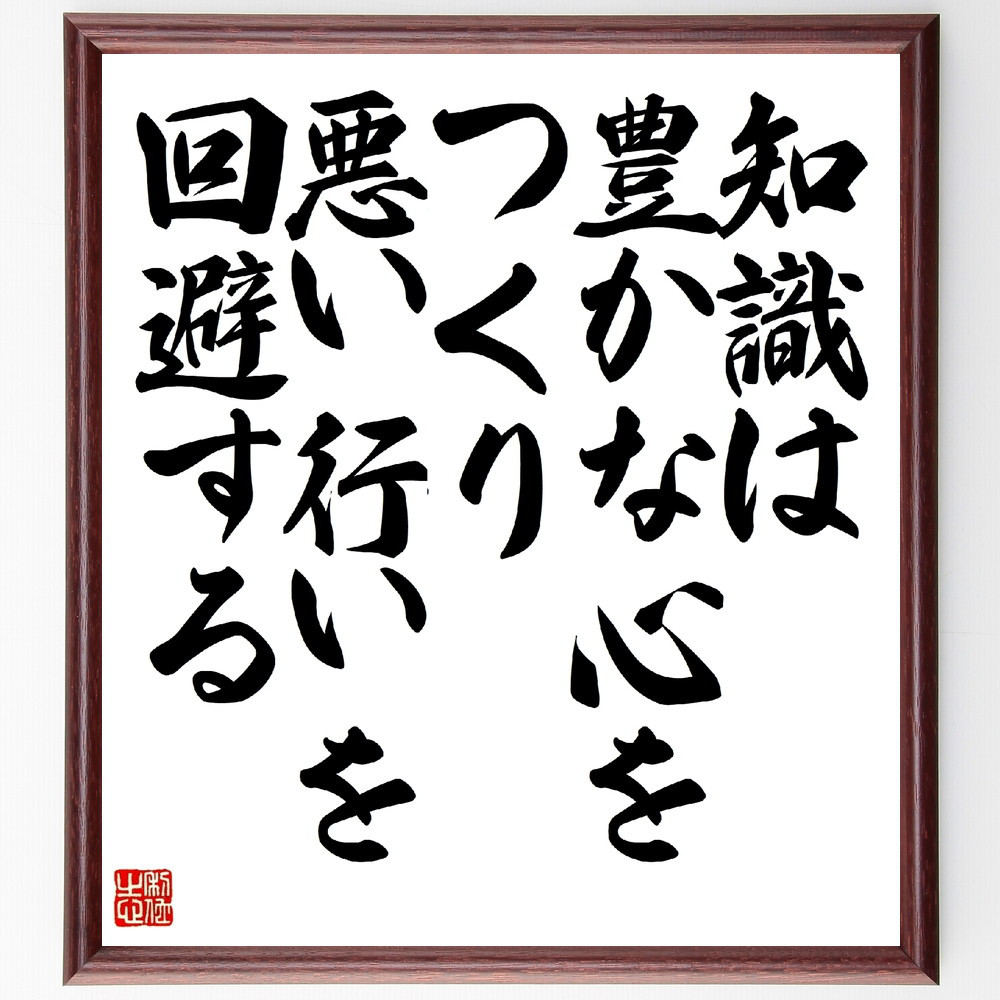 知識は
豊かな心を
つくり
悪い行いを
回避する